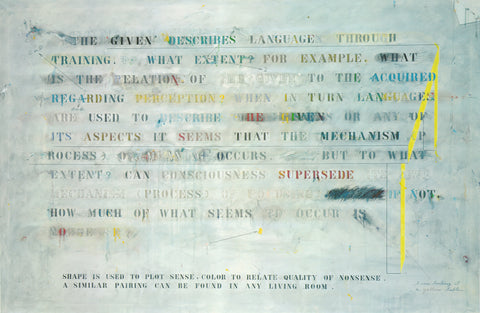 THE GIVEN DESCRIBES LANGUAGE THROUGH
TRAINING. WHAT EXTENT? FOR EXAMPLE. WHAT
IS THE RELATION OF THE GIVEN TO THE ACQUIRED
REGARDING PERCEPTION? WHEN IN TURN LANGUAGES
ARE USED TO DESCRIBE THE GIVEN OR ANY OF
ITS ASPECTS IT SEEMS THAT THE MECHANISM (P
ROCESS? OF OCCURS BUT TO WHAT
EXTENT? CAN CONSCIOUSNESS SUPERSEDE
MECHANISM (PROCESS) OF IF NOT,
HOW MUCH OF WHAT SEEMS TO OCCUR IS
NONSENSE?
SHAPE IS USED TO PLOT SENSE, COLOR TO RELATE QUALITY OF NONSENSE.
A SIMILAR PAIRING CAN BE FOUND IN ANY LIVING ROOM.
I am looking at
a yellow